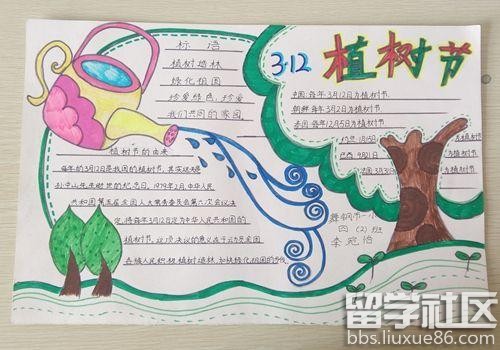 标语
植树造林
绿化祖国
珍爱绿色，珍爱
我们共同的家园
3·12 植树节
中国：每年3月12日为植树节
朝鲜：每年3月2日为植树节
泰国：每年12月5日为植树节
植树节的由来
每年的3月12日是我国的植树节，其实现决是
孙中山先生逝世的纪念日，1979年2月中华人民
共和国第五届全国人大常务委员会第六次会议决
定，将每年3月12日定为中华人民共和国的
植树节，这项决议的意义在于动员全国
各族人民积极植树造林，加快绿化祖国的步伐
舞钢市一小
四（2）班
留学社区
bbs.liuxue86.com